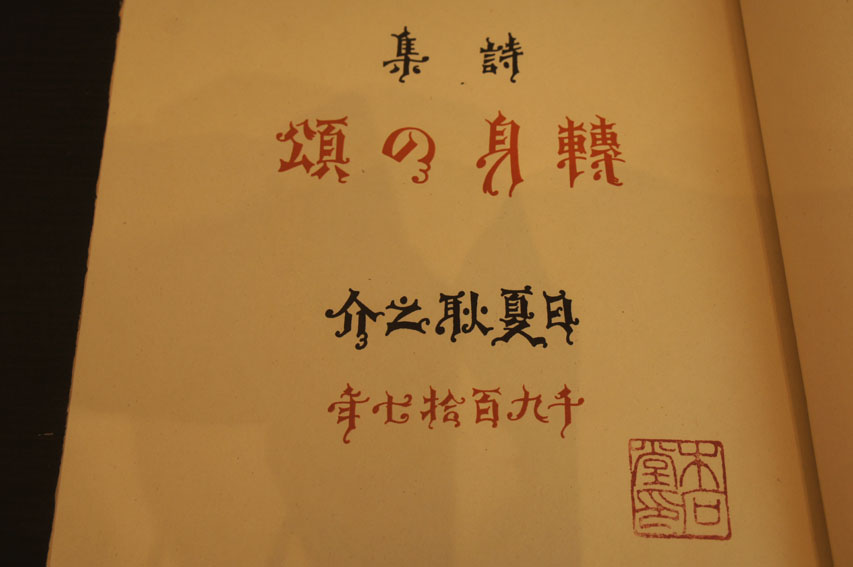 詩集
轉身の頌
日夏耿之介
千九百拾七年